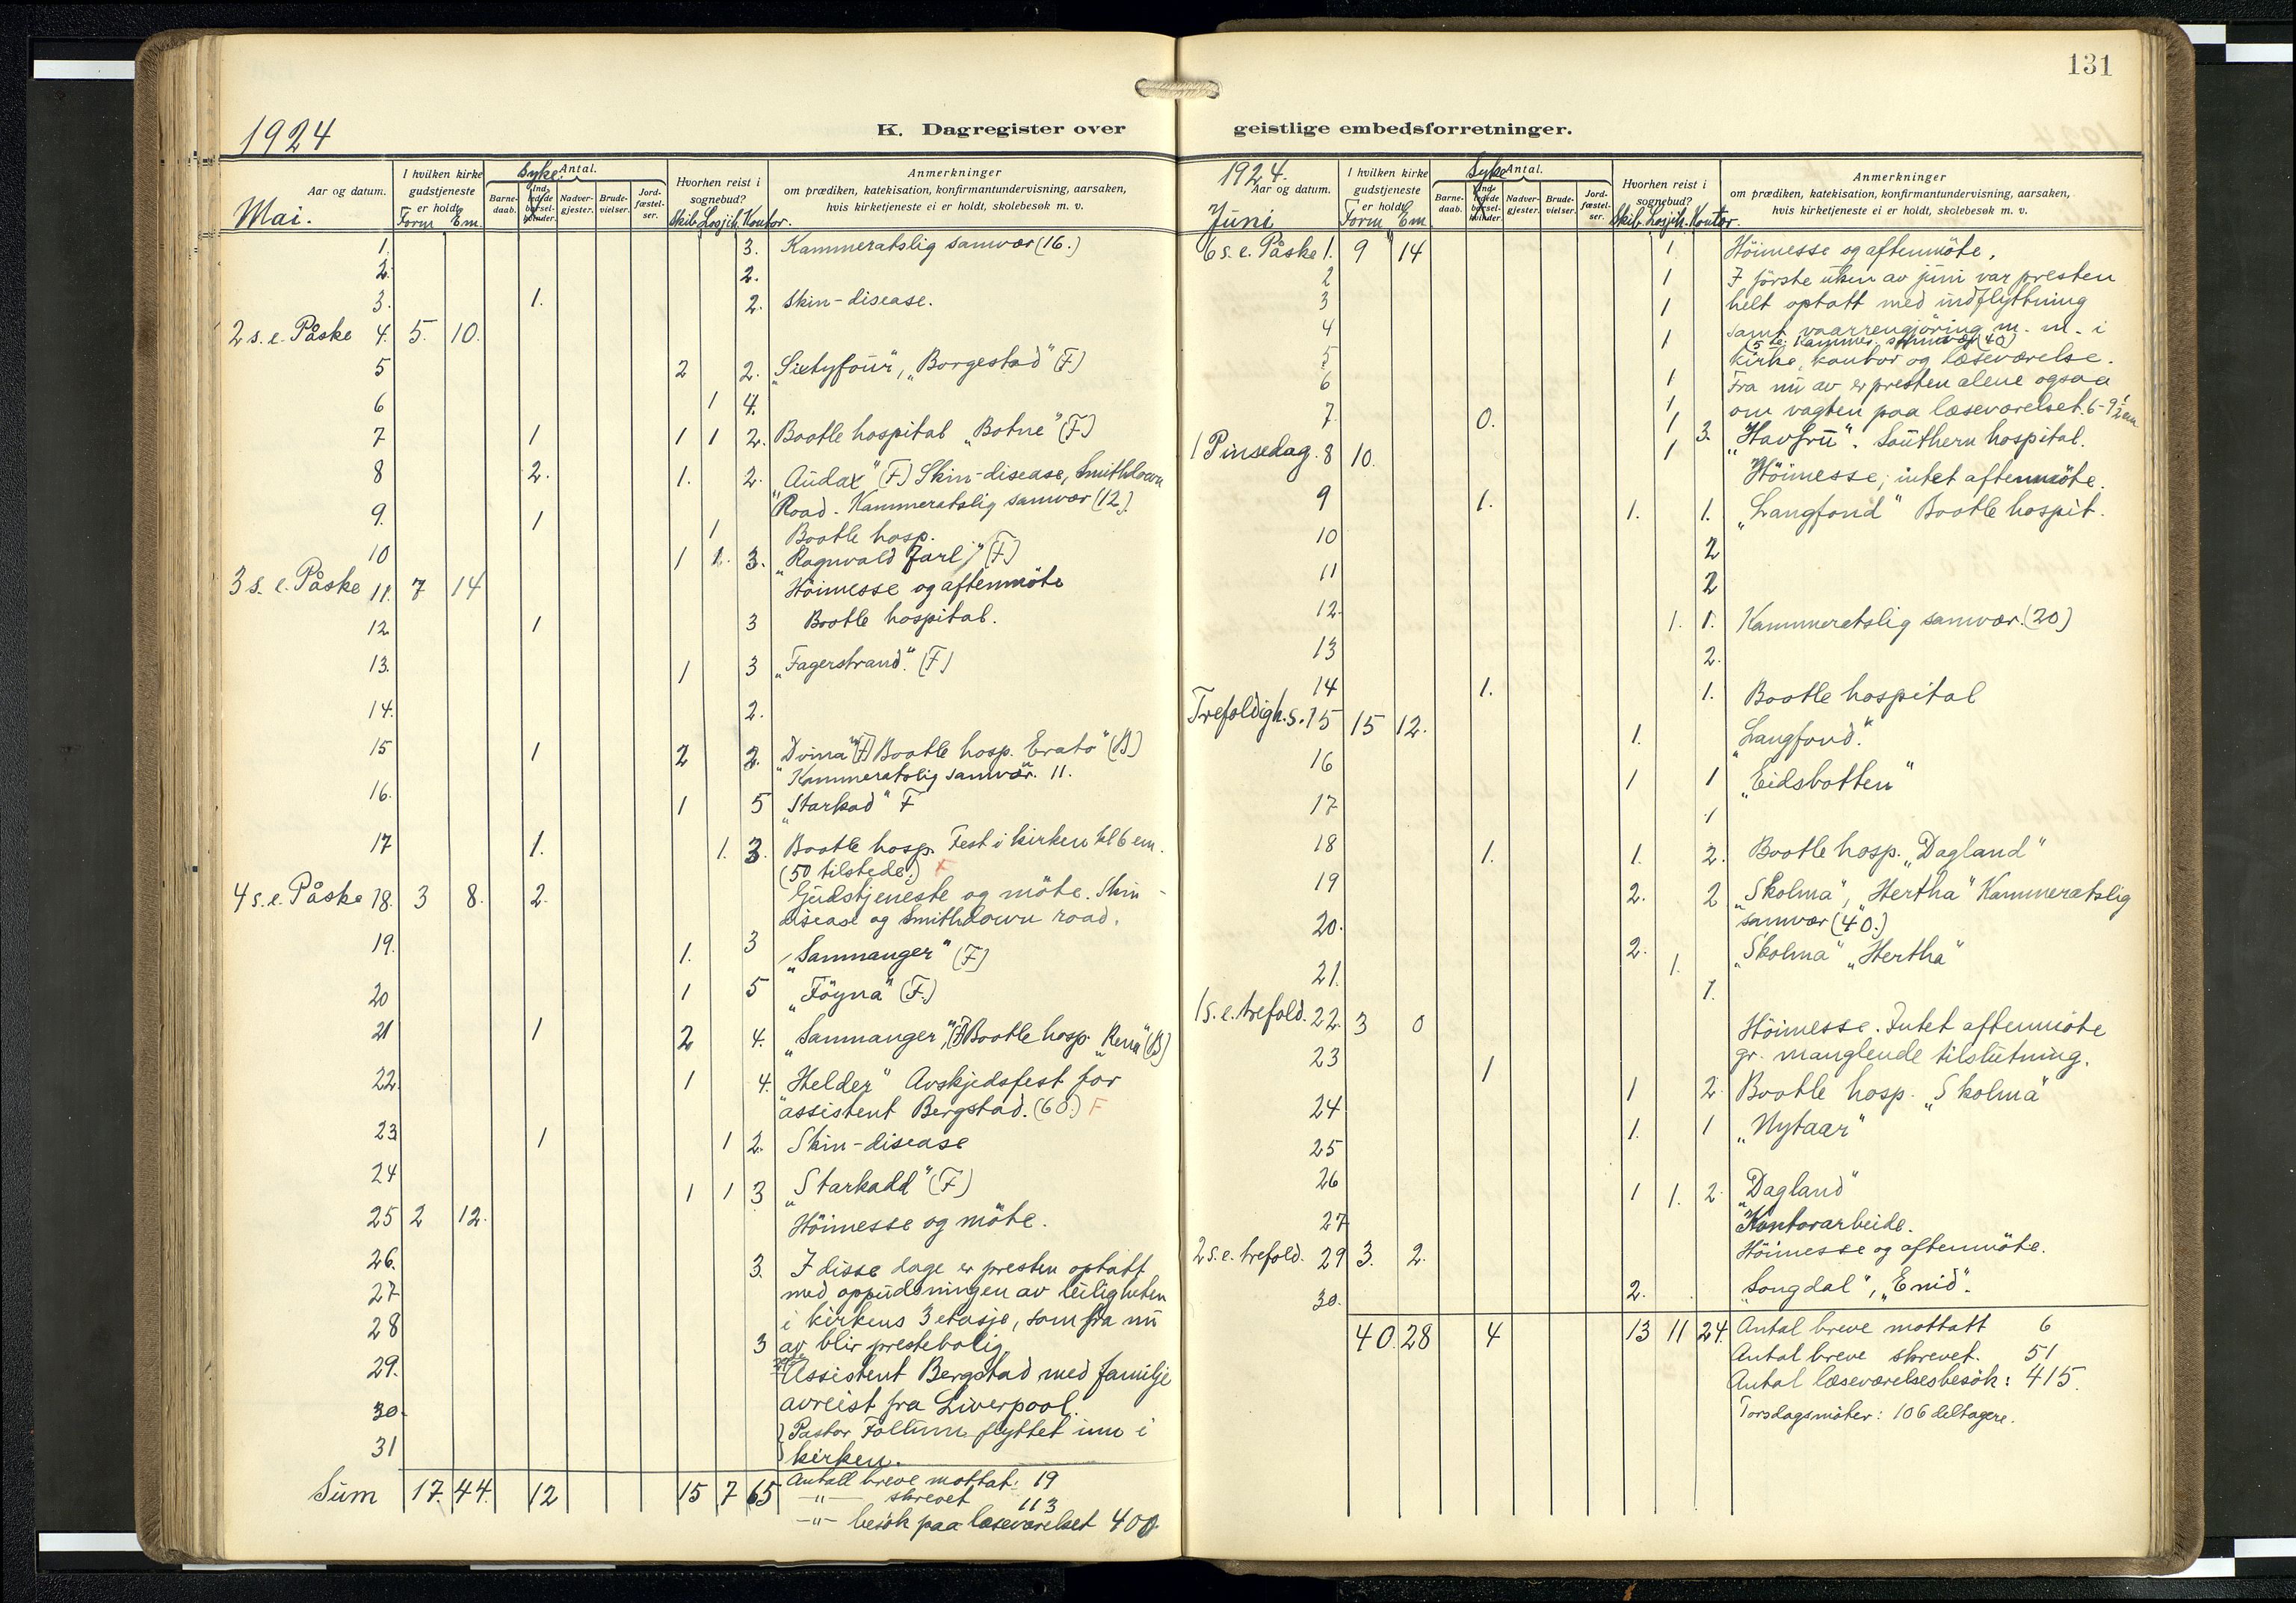 131
1924
K. Dagregister over
Aar og datum.
I hvilken kirke gudstjeneste er holdt
Syke. Antal.
Barnedaab.
Indledede barselkvinder.
Nadvergjester.
Brudevielser.
Jordfæstelser.
Hvorhen reist i sognebud?
Anmerkninger
om prædiken, katekisation, konfirmantundervisning, aarsaken,
hvis kirketjeneste ei er holdt, skolebesøk m. v.
Mai.
Form Em.
Skib. Losjih. Kontor.
1. 3. Kammeratslig samvær (16.)
2. 2.
3. 1. 2. Skin-disease.
2 s. e. Påske 4. 5. 10.
5 2 2. „Sixtyfour", „Borgestad" (F)
6 1 4.
7 1 1 1 2. Bootle hospital „Botne" (F)
8 2. 1. 2. „Audax" (F) Skin-disease, Smithdown
Road. Kammeratslig samvær (12).
9. 1 1 Bootle hosp.
10 1 1. 3. „Ragnvald Jarl" (F)
3 s. e. Påske 11. 7 14 Höimesse og aftenmöte
12. 1 3 Bootle hospital.
13. 1 3 „Fagerstrand". (F)
14. 2.
15 1 2 2. „Dvina" (F) Bootle hosp. Erato" (B)
Kammeratslig samvær. 11.
16. 1 5 „Starkad" F
17 1. 1. 3. Bootle hosp. Fest i kirken kl 6 em.
(50 tilstede.) F
4 s. e. Påske 18. 3 8. 2. Gudstjeneste og möte. Skin-
disease og Smithdown road.
19. 1. 3 „Samnanger" (F)
20 1 5 „Föyna" (F.)
21 1 2 4. „Samnanger", (F) Bootle hosp. „Rena" (B)
22. 1 4. „Helder" Avskjedsfest for
assistent Bergstad. (60.) F
23 1 1 2. Skin-disease
24 1 1 3 „Starkadd" (F)
25 2 12. Höimesse og möte.
26. 3. I disse dage er presten optatt
27 med oppudsningen av leiligheten
i kirkens 3 etasje, som fra nu
28 3 av blir prestebolig.
29. Assistent Bergstad med familje
30. avreist fra Liverpool.
Pastor Foltum flyttet inn i
31 kirken.
Sum 17. 44. 12 15 7 65 Antall breve mottat: 19
-"- skrevet 113
-"- besök paa læseværelset 400.
geistlige embedsforretninger.
1924.
Aar og datum.
I hvilken kirke gudstjeneste er holdt
Syke Antal.
Barnedaab.
Indledede barselkvinder.
Nadvergjester.
Brudevielser.
Jordfæstelser.
Hvorhen reist i sognebud?
Anmerkninger
om prædiken, katekisation, konfirmantundervisning, aarsaken,
hvis kirketjeneste ei er holdt, skolebesøk m. v.
Juni
Form Em.
Skib. Losjih. Kontor.
6 s. e. Påske 1. 9 14 1 Höimesse og aftenmöte.
2 1 I förste uken av juni var presten
3 1 helt optatt med indflyttning
4 1 samt vaarrengjöring m. m. i
(5te: Kammer. samvær (40)
5 kirke, kontor og læseværelse.
6 1 Fra nu av er presten alene ogsaa
1 om vagten paa læseværelset. 6-9½ em
7. 0. 1 3. „Havfru". Southern hospital.
1 Pinsedag. 8 10. 1 Höimesse; intet aftenmöte.
9 1. 1. 1. „Langfond" Bootle hospit.
10 2
11 2
12. 1. 1. Kammeratslig samvær. (20)
13 2.
14 1. 1. Bootle hospital
Trefoldigh. s. 15 15 12. 1. „Langfond."
16 1 1 „Eidsbotten"
17 1
18 1. 1. 2. Bootle hosp. „Dagland"
19 2. 2 „Skolma", „Hertha" Kammeratslig
samvær (40.)
20. 2. 1. „Skolma" „Hertha"
21. 1.
1 s. e. trefold. 22. 3 0 Höimesse. Intet aftenmöte
gr. manglende tilslutning.
23 1 1 2. Bootle hosp. „Skolma"
24 1. 1 „Nytaar"
25
26 1 1. 2. „Dagland"
27 Kontorarbeide.
2 s. e. trefold. 29 3. 2. Höimesse og aftenmöte.
30. 2. „Songdal", „Enid".
40. 28 4 13 11 24. Antal breve mottatt 6
Antal breve skrevet. 51
Antal læseværelsesbesök: 415.
Torsdagsmöter: 106 deltagere.